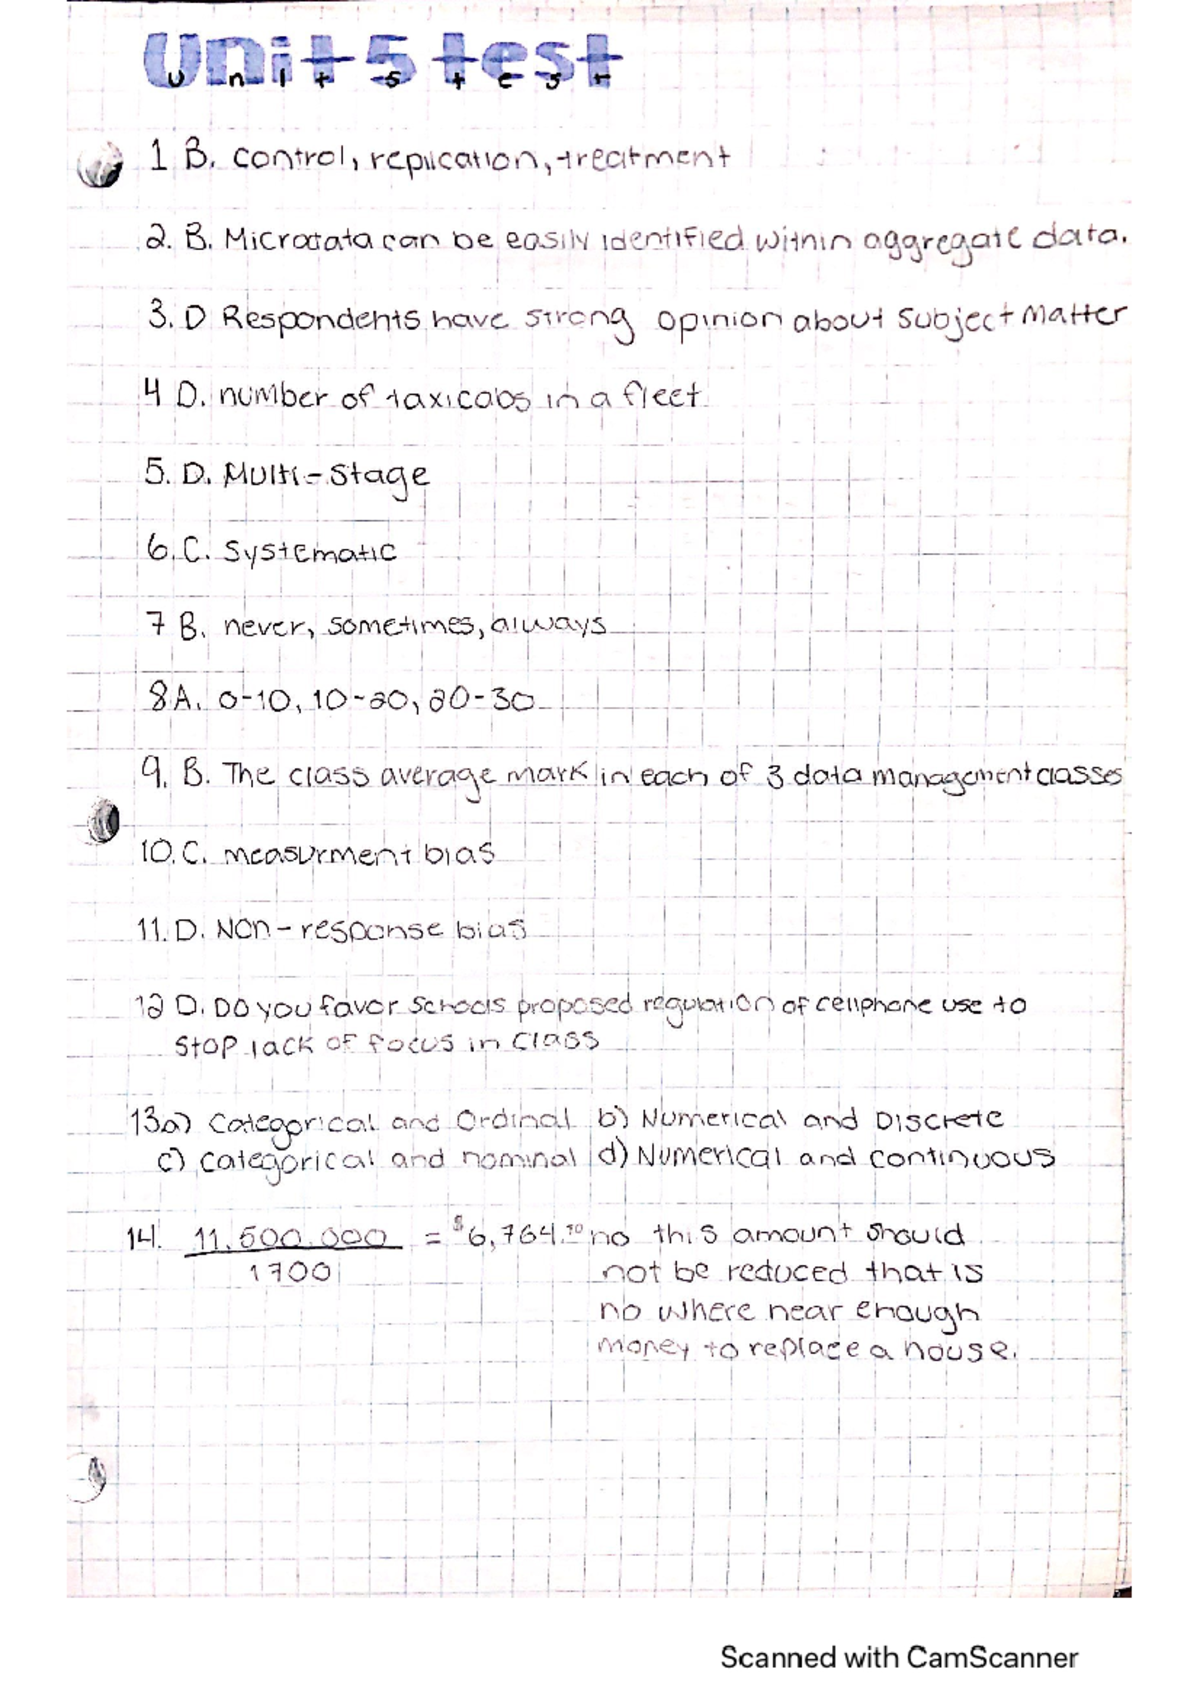 Unit 5 test
unit 5 test
1 B. control, replication, treatment
2. B. Microdata can be easily identified within aggregate data.
3. D Respondents have strong opinion about subject matter
4 D. number of taxicabs in a fleet
5. D. Multi-Stage
6. C. Systematic
7 B. never, sometimes, always
8 A. 0-10, 10-20, 20-30
9. B. The class average mark in each of 3 data management classes
10. C. measurment bias
11. D. Non-response bias
12 D. Do you favor schools proposed regulation of cellphone use to
stop lack of focus in class
13a) Categorical and Ordinal b) Numerical and Discrete
c) Categorical and nominal d) Numerical and continuous
14. 11,500,000 = $6,764.70 no this amount should
1700 not be reduced that is
no where near enough
money to replace a house.
Scanned with CamScanner